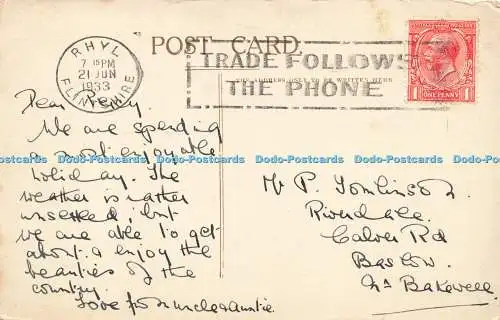 RHYL
7 15 PM
21 JUN
1933
FLINTSHIRE
POST CARD.
TRADE FOLLOWS
THE PHONE
THE ADDRESS ONLY TO BE WRITTEN HERE
ONE PENNY
Dear Percy
We are spending
a most enjoyable
holiday. The
weather is rather
unsettled, but
we are able to get
about & enjoy the
beauties of the
country.
Love from uncle & Auntie.
Mr P. Tomlinson
Riverdale
Calver Rd
Baslow
Nr Bakewell
Dodo-Postcards Dodo-Postcards Dodo-Postcards Dodo-Postcards Dodo-Postcards Dodo-Postcards